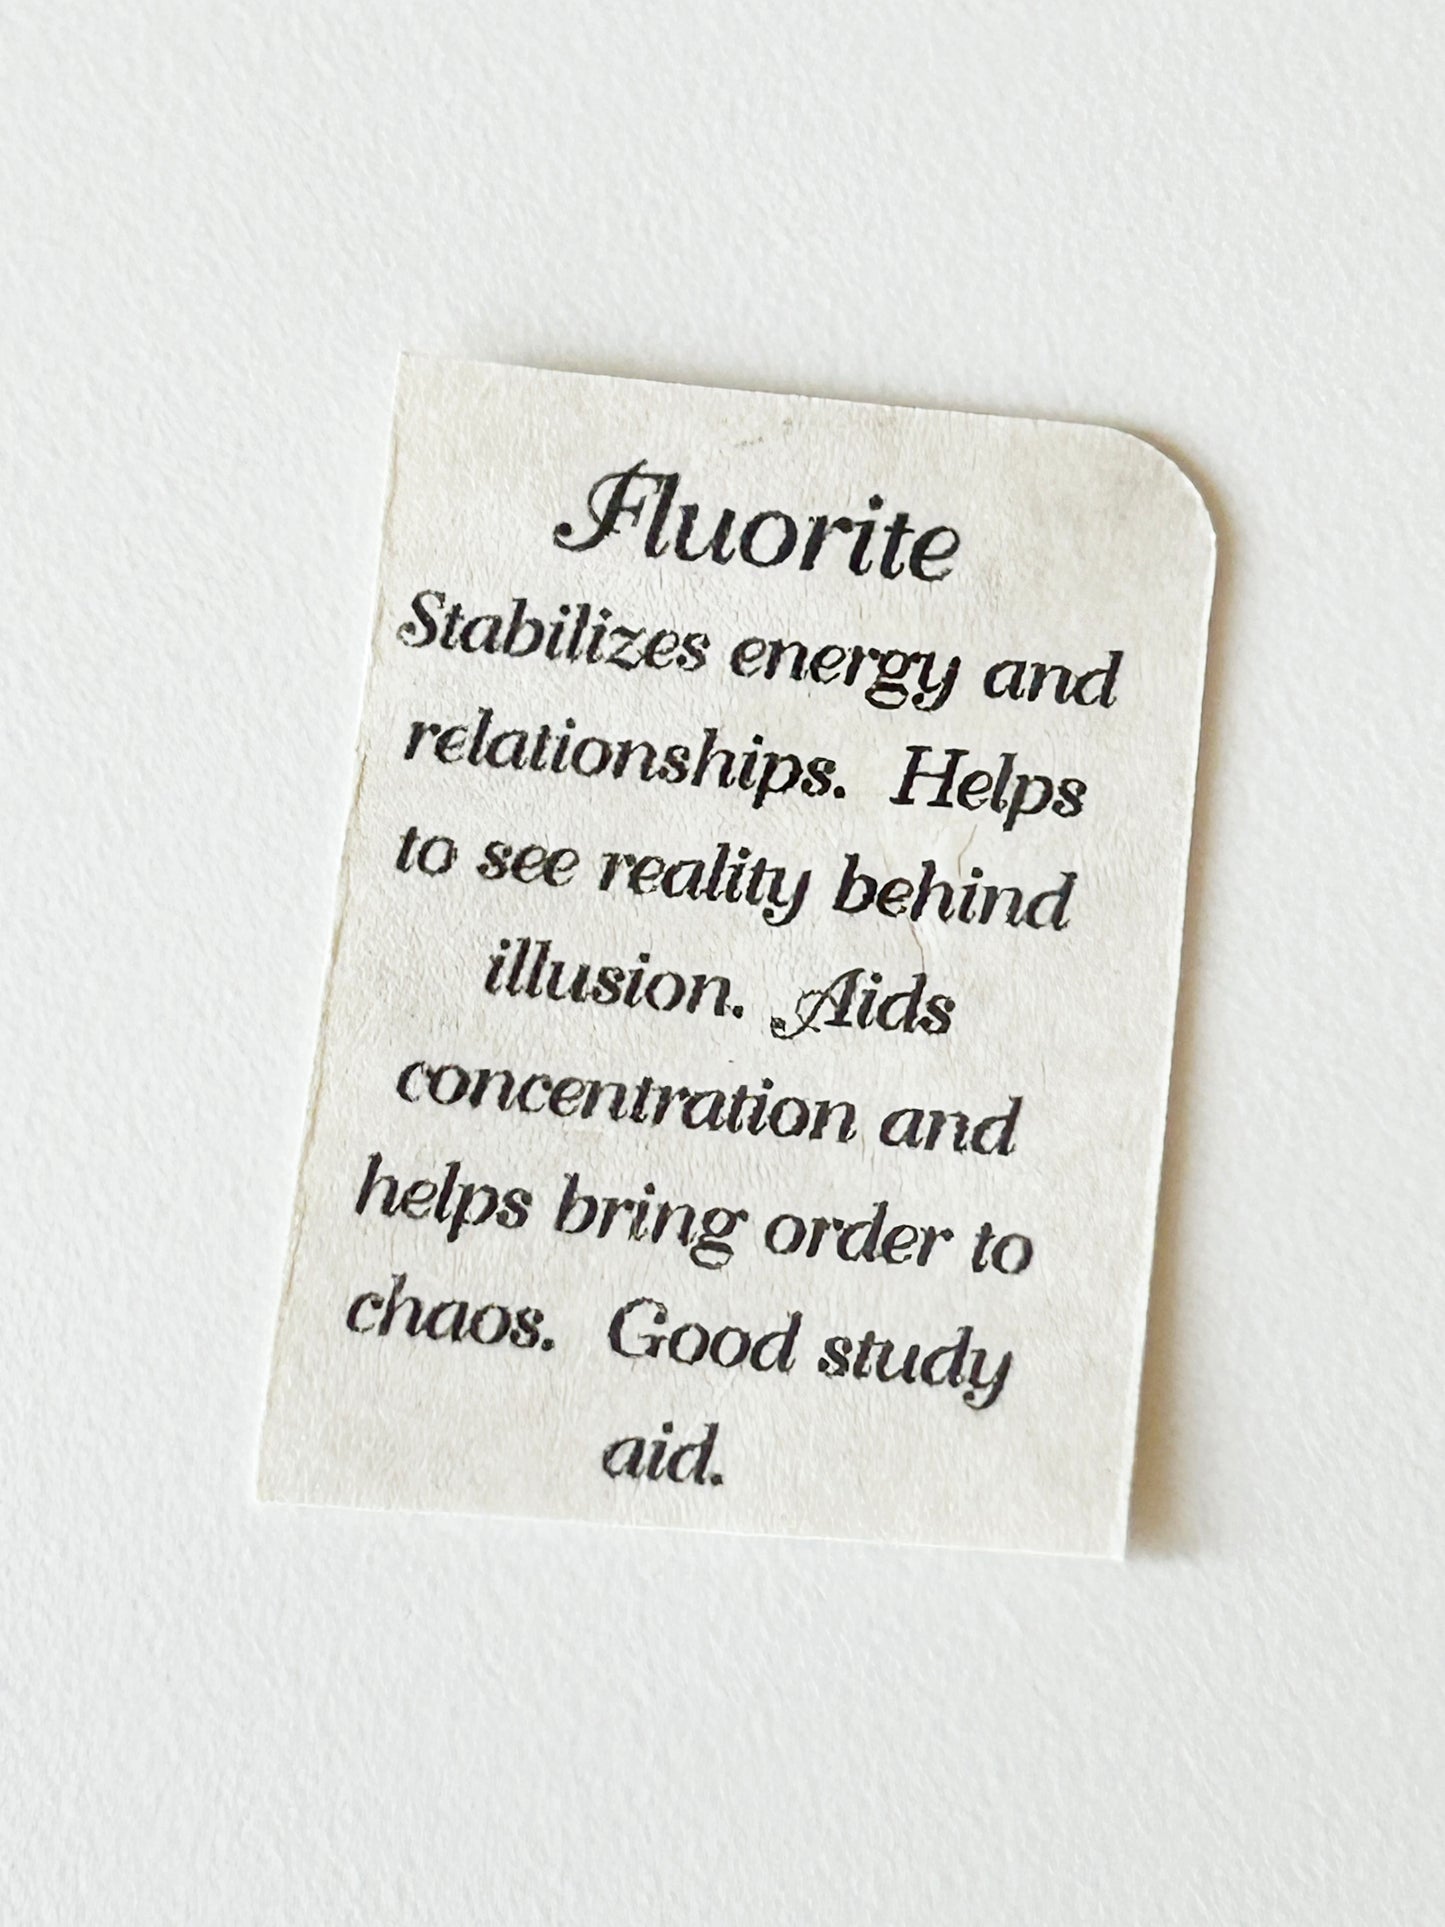 Fluorite
Stabilizes energy and
relationships. Helps
to see reality behind
illusion. Aids
concentration and
helps bring order to
chaos. Good study
aid.